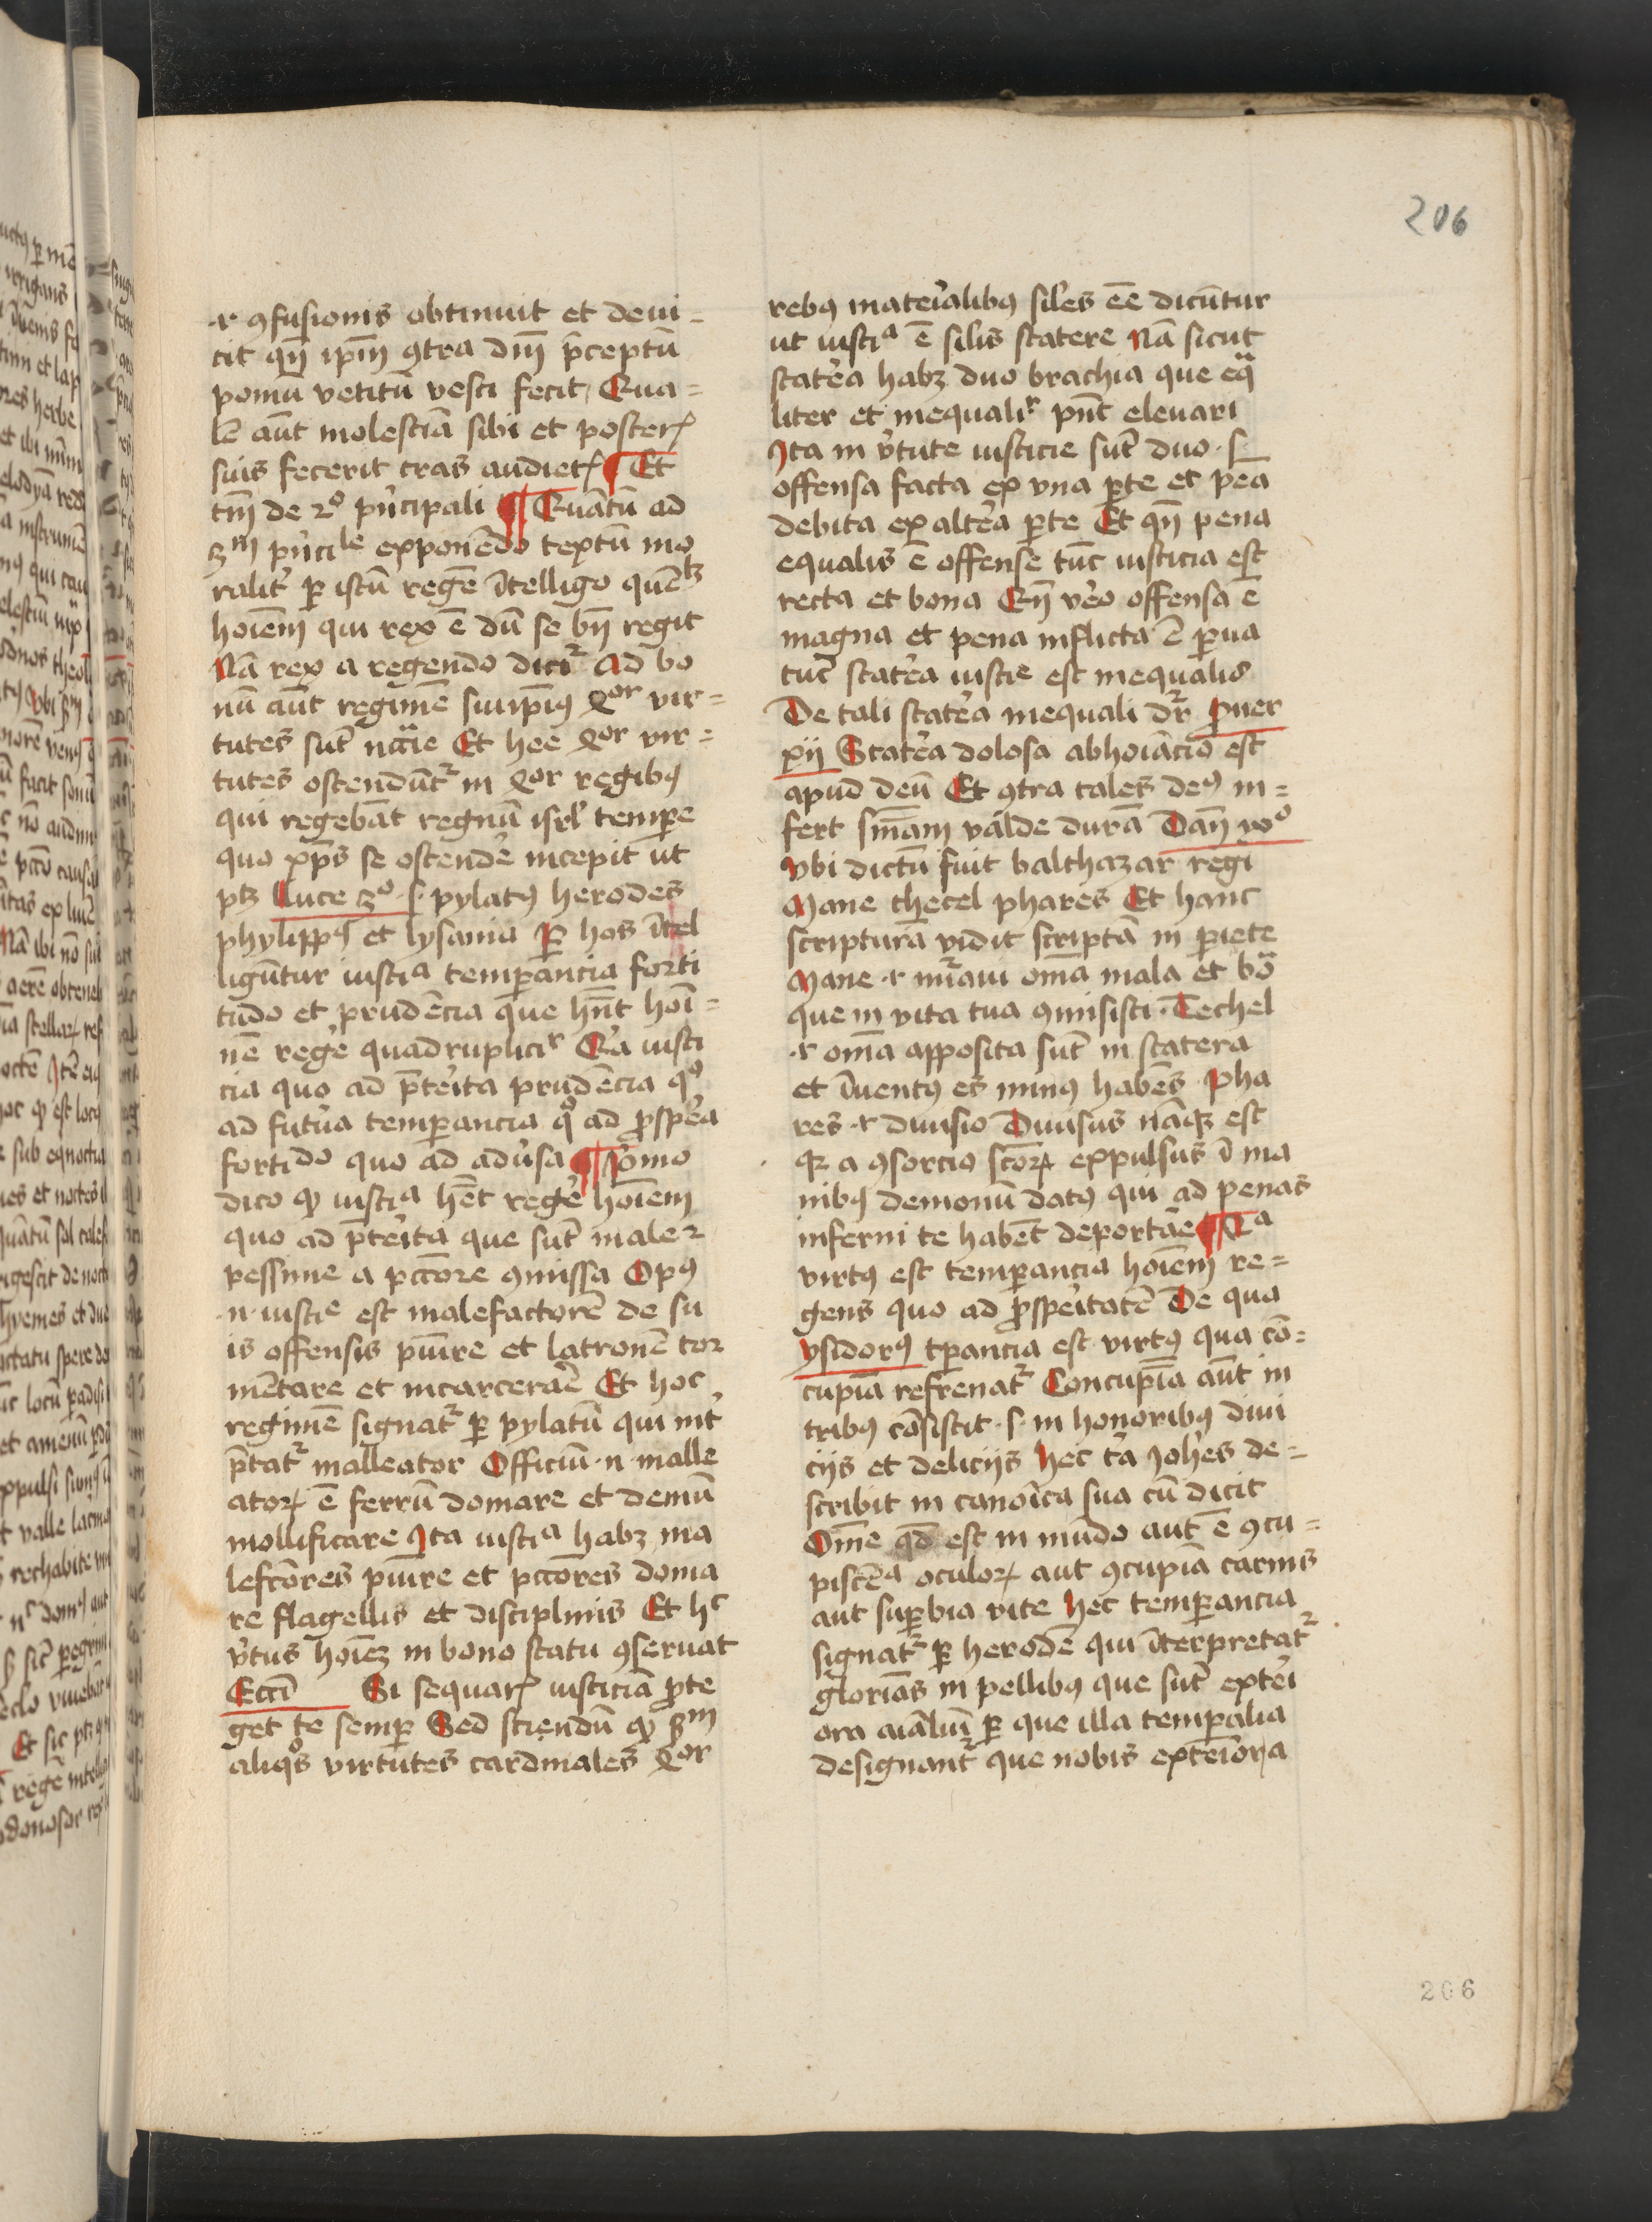 206
.r. ꝯfusionis obtinuit et deui=
cit qn̄ ip̄m ꝯtra dn̄j p̄ceptū
pomū vetitū vesci fecit Qua=
lē aūt molestiā sibi et posterꝭ
suis fecerit cras audietꝭ ¶ Et
tm̄ de 2º pͥncipali ¶ Quātū ad
3m pͥncile exponēdo textū mo
ralit̉ ꝑ istū regē ītelligo quēlꝫ
hoīem qui rex ē dū se bn̄ regit
Nā rex a regendo dicit᷑ Ad bo
nū aūt regimē sui ip̄ius 4or vir=
tutes sūt nccͣie Et hee 4or vir=
tutes ostendūt᷑ in 4or regibꝰ
qui regebāt regnū isrl̓ tempe
quo xp̄s se ostende̓ incepit ut
ptꝫ Luce 3º .s. pylatꝰ herodes
phylippꝰ et lysania ꝑ hos ītel
ligūtur iustia temꝑancia forti
tudo et prudēcia que hn̄t hoī=
nē rege̓ quadruplicir Qa̓ iusti
cia quo ad p̄teita prudēcia qº
ad futu̓a temꝑancia qº ad ꝓspe̓a
fortido quo ad adu̓sa ¶ Pͥmo
dico ꝙ iustia hēt rege̓ hoīem
quo ad p̄teita que sūt male 2
pessime a pccōre ꝯmissa Opꝰ
.n. iustie est malefactorē de su
is offensis puīre et latronē tor
mētare et incarcerae̓ Et hoc
regimē signat᷑ ꝑ pylatū qui int̓
p̄tat᷑ malleator Officiū .n. malle
atoꝝ ē ferrū domare et demū
mollificare Ita iustia habꝫ ma
lefcōres puīre et pccōres doma
re flagellis et disciplinis Et hc
v̓tus hoīeꝫ in bono statu ꝯseruat
Eccī Si sequarꝭ iusticiā ꝓte
get te semꝑ Sed sciendū ꝙ ẜm
aliqºs virtutes cardinales 4or
rebꝰ mateīalibꝰ sil̓es eē̄ dicūtur
ut iustia ē sil̓is statere Nā sicut
state̓a habꝫ duo brachia que eqͣ
liter et inequalir pn̄t eleuari
Ita in v̓tute iusticie sūt duo .s.
offensa facta ex vna ꝑte et pēa
debita ex alte̓a ꝑte Et qn̄ pena
equalis ē offense tūc iusticia est
recta et bona Qn̄ ve̓o offensa ē
magna et pena inflicta ē ꝑua
tūc state̓a iustie est inequalis
De tali state̓a inequali dr̄ ꝓuer
xij State̓a dolosa abhoīacio est
apud deū Et ꝯtra tales deꝰ in=
fert sn̄iam valde durā Dan̄
vbi dictū fuit balthazar regi
Mane thecel phares Et hanc
scripturā vidit scriptā in ꝑiete
Mane .r. nūaui om̄a mala et bōͣ
que in vita tua ꝯmisisti. Techel
.r. om̄a apposita sūt in statera
et īuentꝰ es minꝰ habēs Pha
res .r. diuisio Diuisus nāqꝫ est
qꝛ a ꝯsorcio sc̄oꝝ expulsus ī ma
nibꝰ demonū datꝰ qui ad penas
inferni te habēt deportāe ¶ 2a
virtꝰ est temꝑancia hoīem re=
gens quo ad ꝓspeitatē De qua
ysidorꝰ tꝑancia est virtꝰ qua cō=
cupīa refrenat᷑ Concupīa aūt in
tribꝰ cōsistit .s. in honoribꝰ diui
cijs et delicijs Hec tͥa Joh̓es de=
scribit in canoīca sua cū dicit
Om̄e qd̄ est in mūdo aut ē ꝯcu=
piscēa oculoꝝ aut ꝯcupīa carnis
aut suꝑbia vite Hec temꝑancia
signat᷑ ꝑ herodē qui īterpretat᷑
glorīas in pellibꝰ que sūt extei
ora aīaliū ꝑ que illa temꝑalia
designant᷑ que nobis exteīora
206